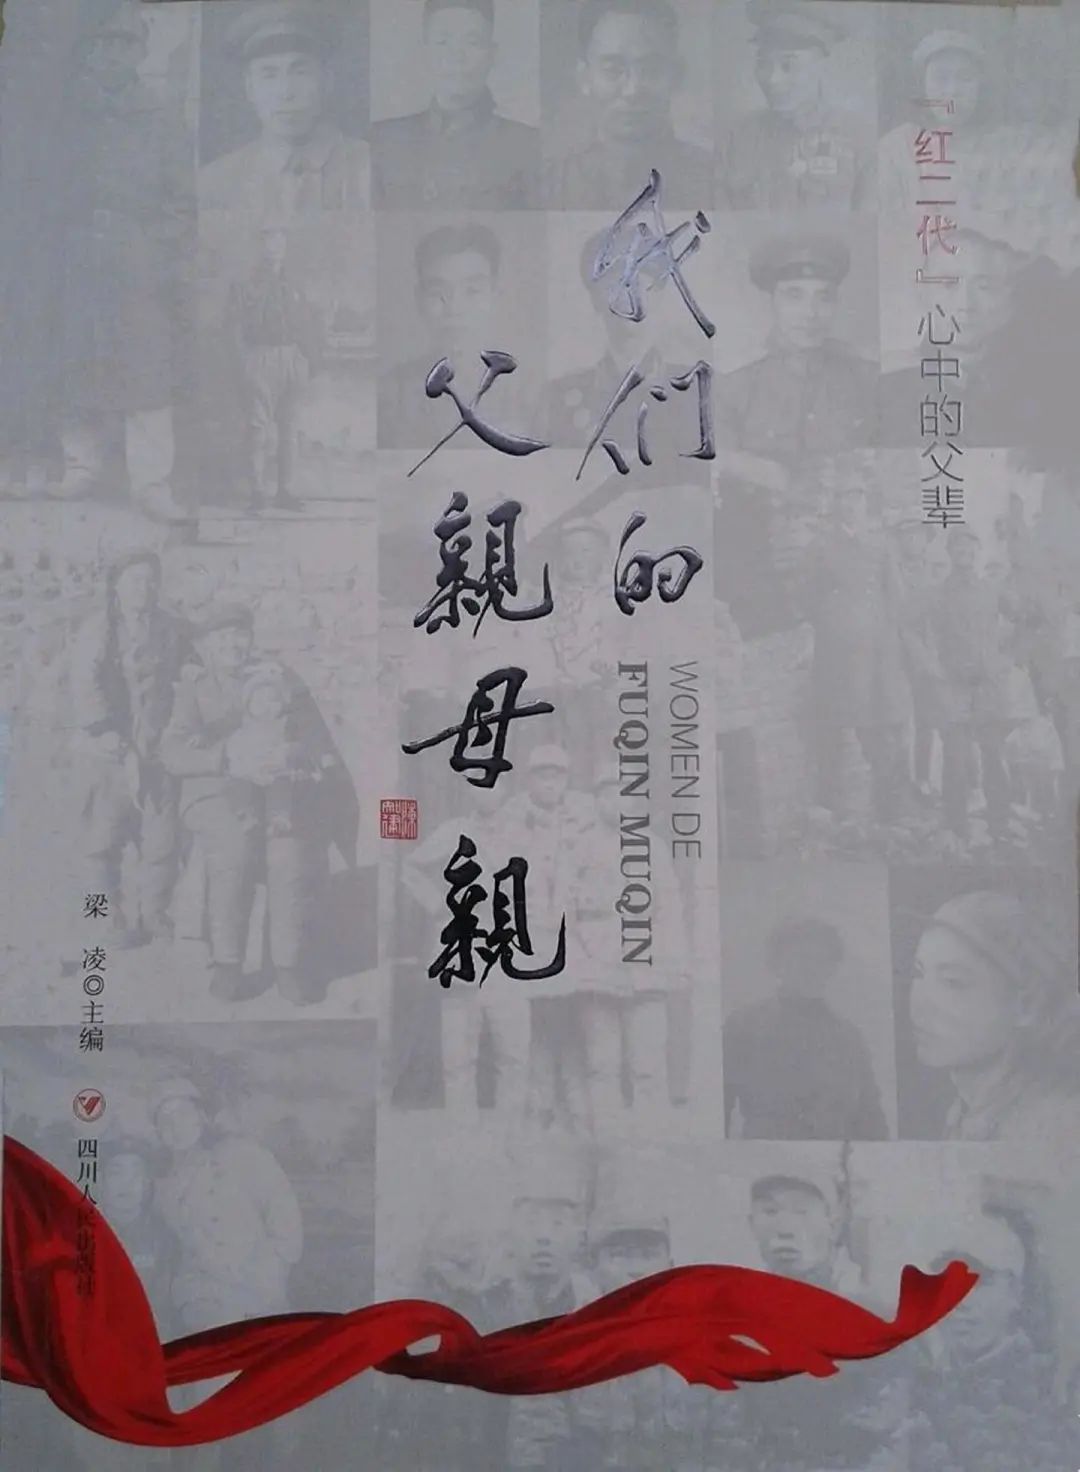 『红二代』心中的父辈
我们的
父親母親
WOMEN DE
FUQIN MUQIN
梁 凌◎主编
四川人民出版社